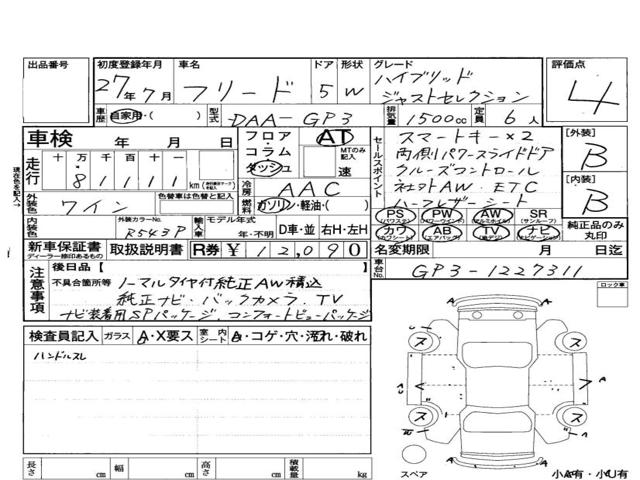 出品番号
初度登録年月 27年7月
車名 フリード
ドア 形状 5 W
グレード ハイブリッド
ジャストセレクション
評価点 4
車歴 自家用・( )
型式 DAA-GP3
排気量 1500cc
定員 6人
車検 年 月 日
フロア・コラム ダッシュ
AT
MTのみ記入
速
セールスポイント
スマートキー×2
両側パワースライドドア
クルーズコントロール
社外AW. ETC
ハーフレザーシート
[外装] B
[内装] B
走行 十 万 千 百 十 一
81111 km
冷房 AAC
外装色 ワイン
色替車は色替と記入
燃料 ガソリン・軽油・( )
PS パワステ
PW パワーウインド
AW アルミホイル
SR サンルーフ
カワ
AB エアバック
TV
ナビ ナビゲーション
純正品のみ丸印
内装色
外装カラーNo. R543P
輸入車
モデル年式 年・不明
D車・並 右H・左H
新車保証書
ディーラー捺印あるもの
取扱説明書
R券 ¥12,090
名変期限 月 日迄
車台No. GP3-1227311
注意事項
後日品 [ ]
不具合箇所等
ノーマルタイヤ付純正AW積込
純正ナビ・バックカメラ.TV
ナビ装着用SPパッケージ. コンフォートビューパッケージ
ロック車
検査員記入 ガラス A・X要ス 室内シート A・コゲ・穴・汚れ・破れ
ハンドルスレ
ス
ス
A
A
ス
ス
長さ cm 幅 cm 高さ cm 積載量 kg
スペア
小A有・小U有
現在の色を記入→